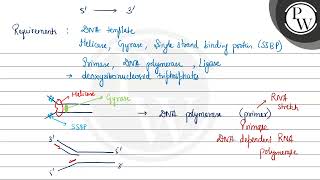 PW
5' → 3'
Requirements : DNA template
Helicase, Gyrase, Single strand binding protein (SSBP)
Primase, DNA polymerase, Ligase
→ deoxyribonucleosed triphosphate
Helicase
Gyrase
SSBP
→ DNA polymerase (primer) → RNA stretch
Primase
DNA dependent RNA
polymerase
5'
3'
5'
3'